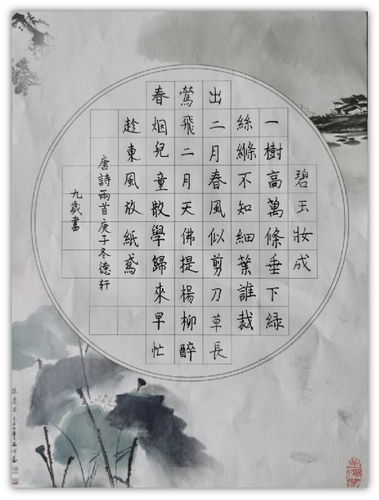 碧玉妝成
一樹高萬條垂下綠
絲縧不知細葉誰裁
出二月春風似剪刀草長
鶯飛二月天佛提楊柳醉
春烟兒童散學歸來早忙
趁東風放紙鳶
唐詩兩首庚子冬德軒
九歲書